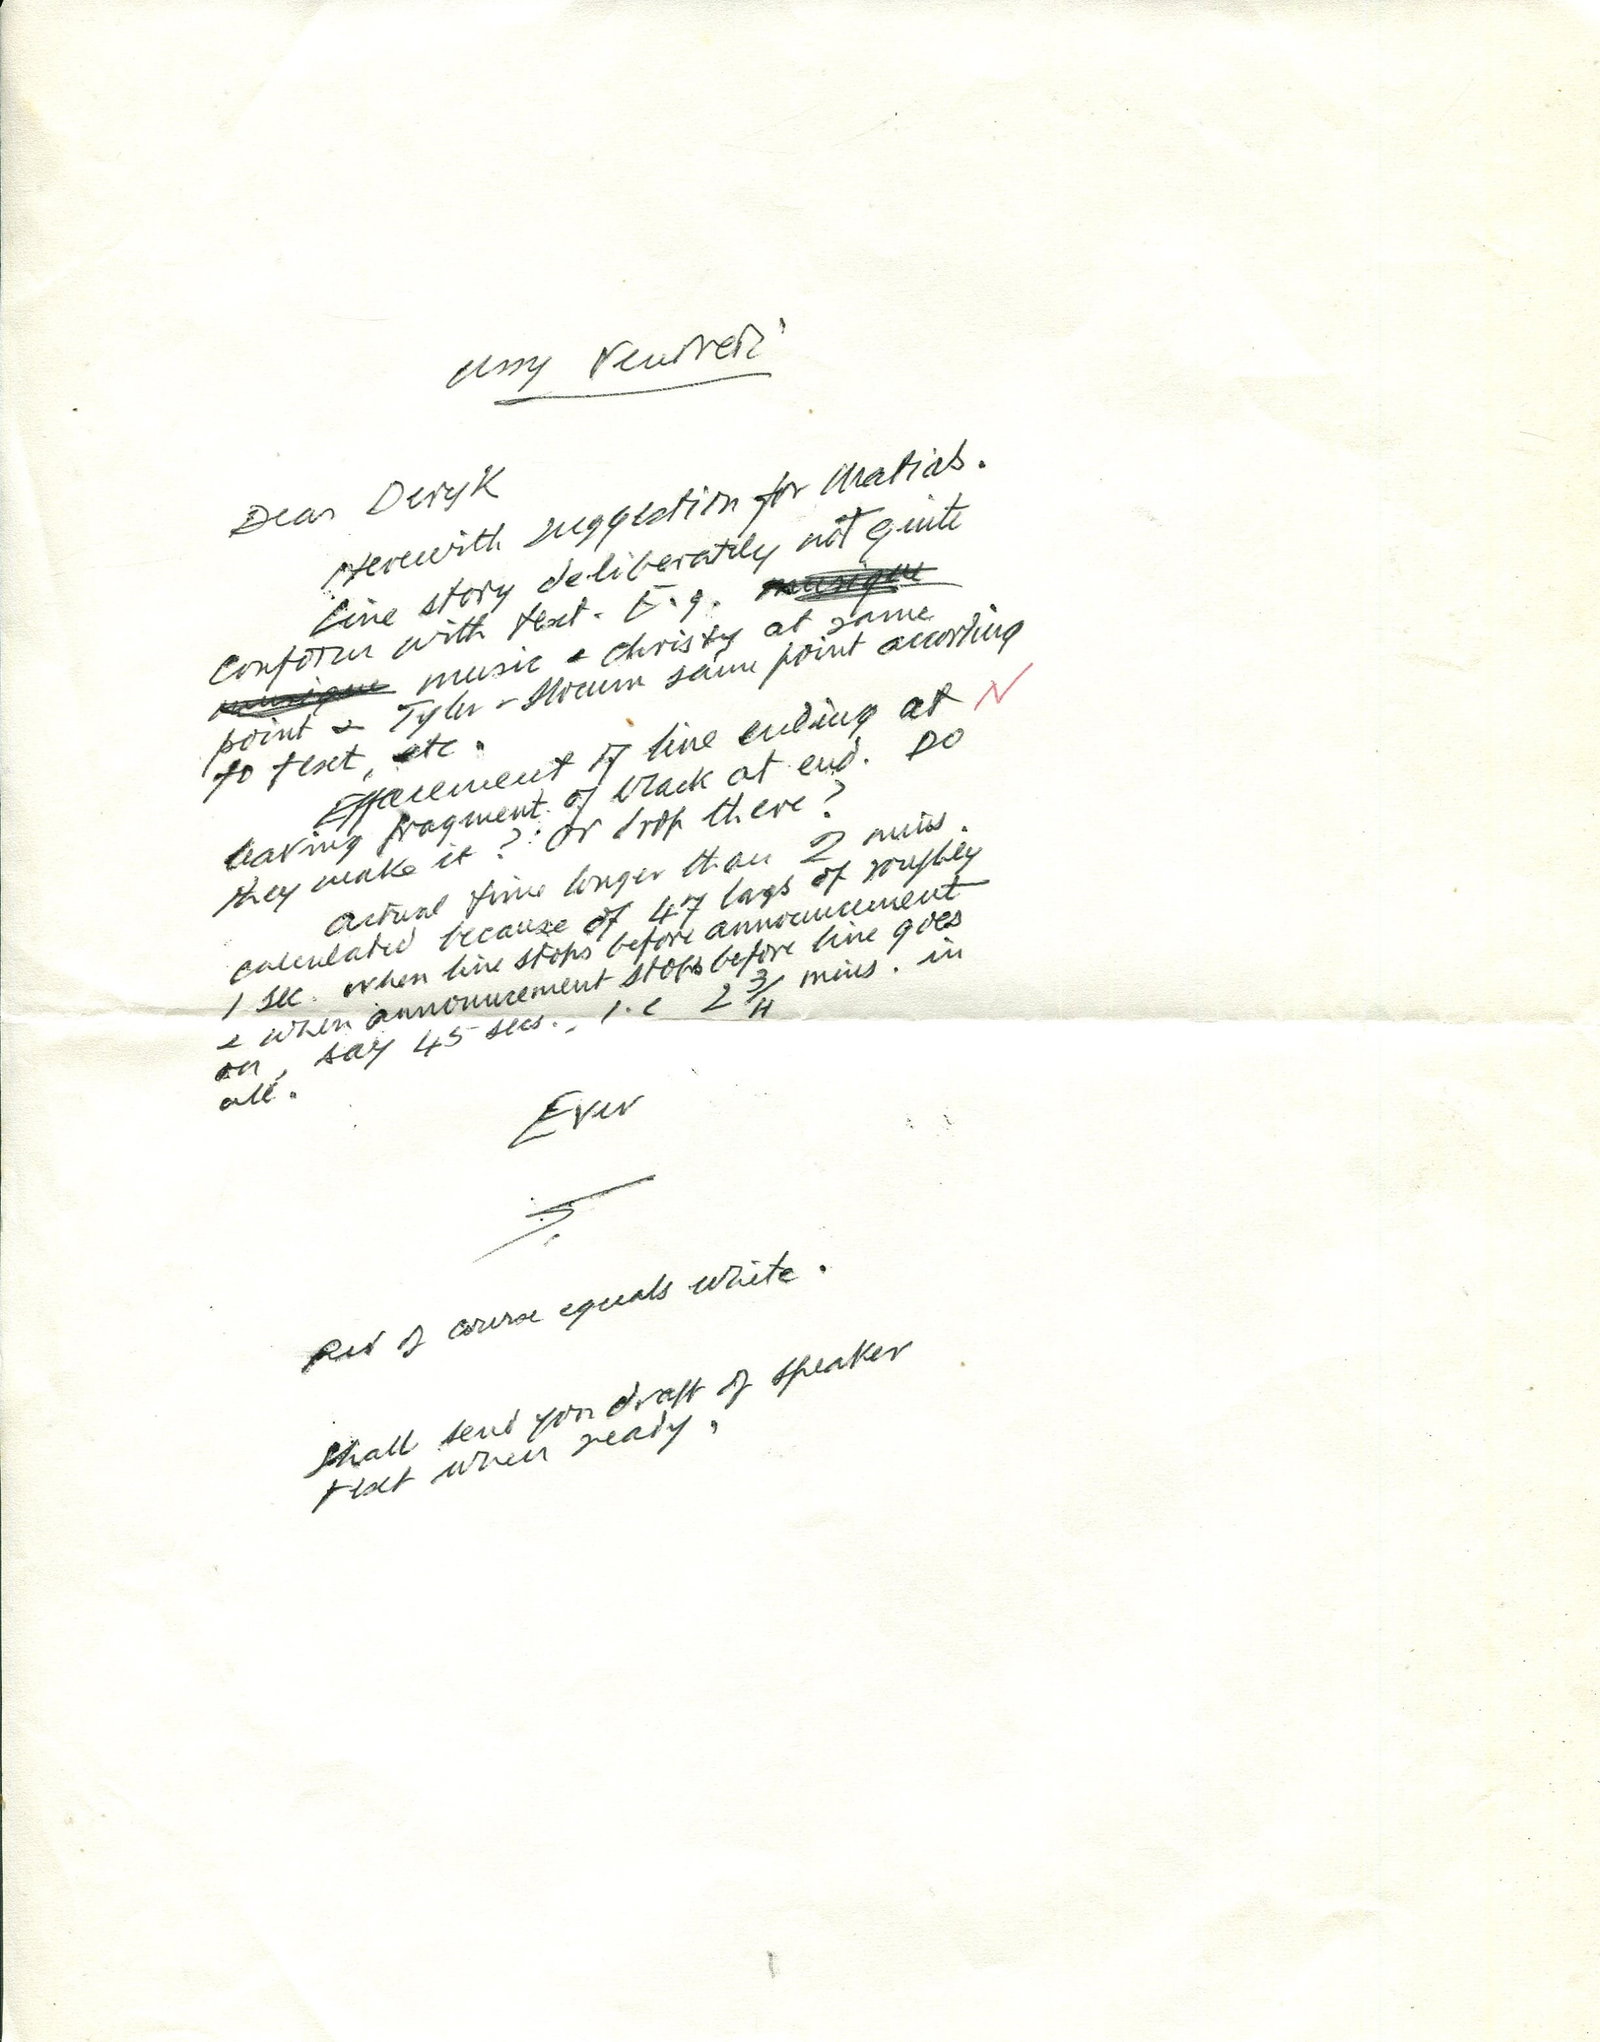 Ussy Vendredi
Dear Deryk
Herewith suggestion for Matias.
Line story deliberately not quite
conform with text. E.g. musique
musique music & Christy at same
point & Tyler-Slocum same point according
to text, etc.
Effacement of line ending at N
leaving fragment of black at end. Do
they make it? Or drop there?
Actual time longer than 2 mins.
calculated because of 47 lags of roughly
1 sec. when line stops before announcement
& when announcement stops before line goes
on, say 45 secs., i.e 2 3/4 mins. in
all.
Ever
Red of course equals white.
Shall send you draft of speaker
text when ready.